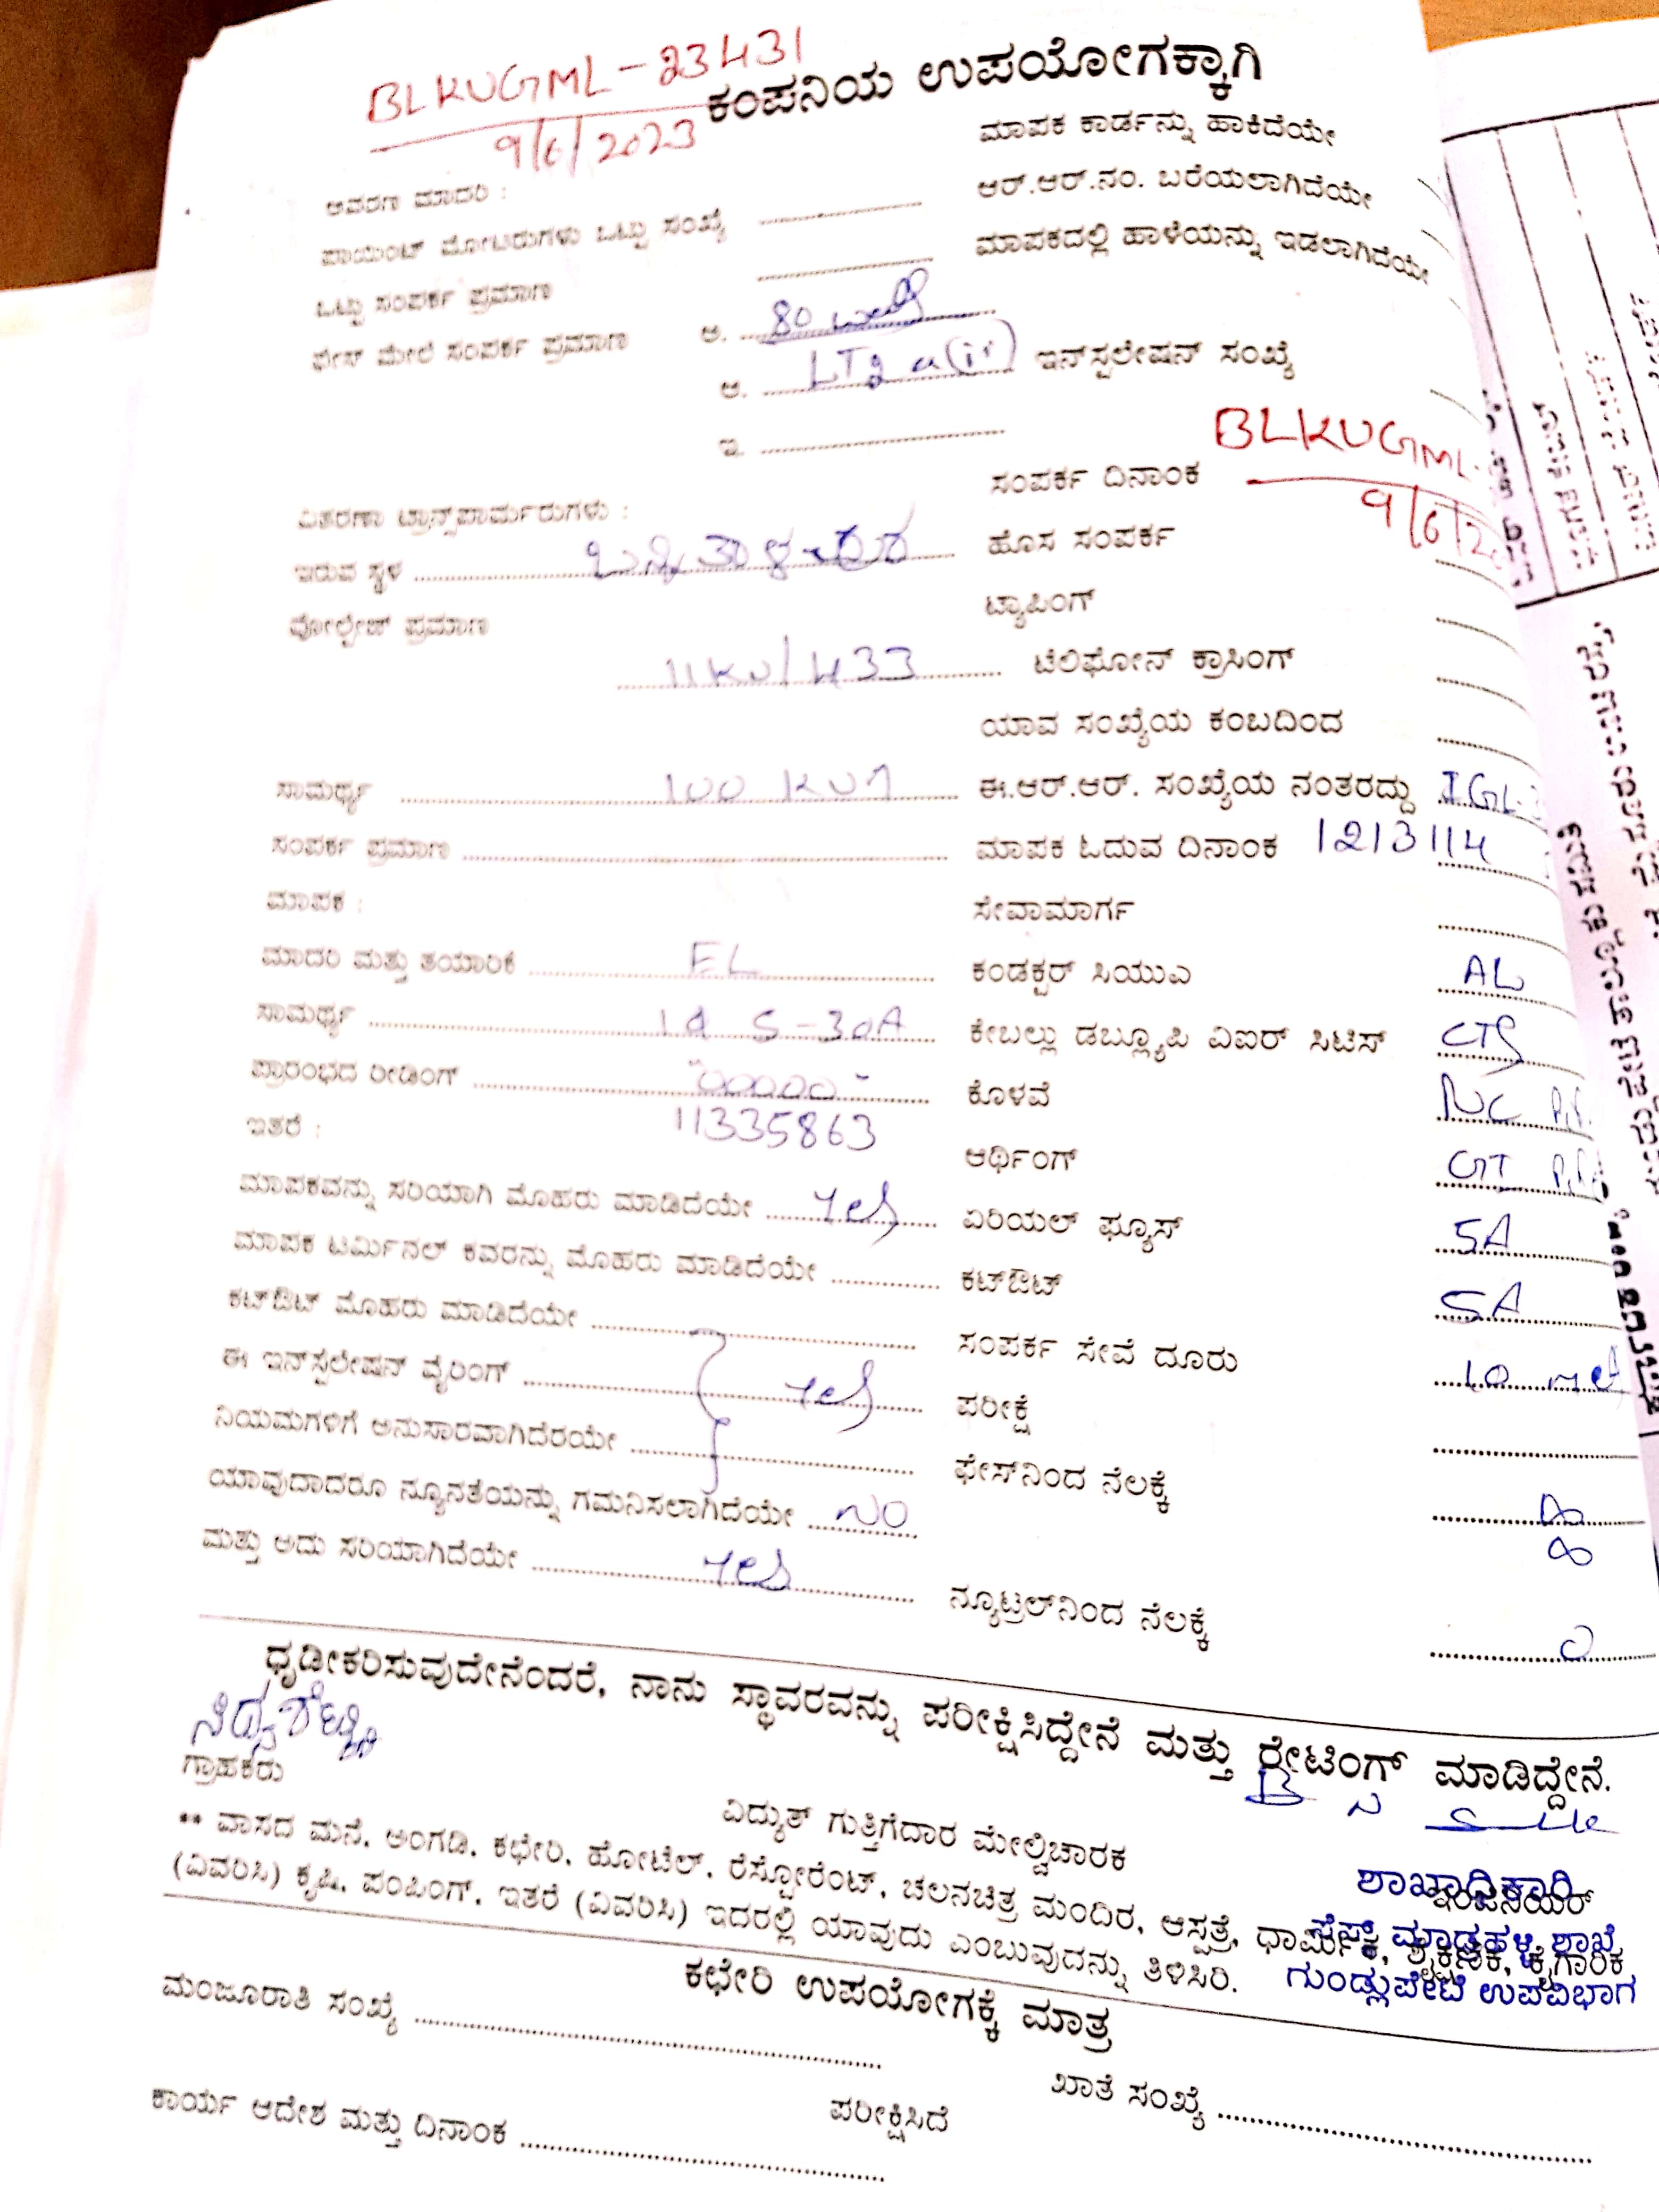 BLKUGML-23431
9/6/2023
ಕಂಪನಿಯ ಉಪಯೋಗಕ್ಕಾಗಿ
ಆವರಣ ಮಾದರಿ :
ಮಾಪಕ ಕಾರ್ಡನ್ನು ಹಾಕಿದೆಯೇ
ಪಾಯಿಂಟ್ ಮೋಟರುಗಳು ಒಟ್ಟು ಸಂಖ್ಯೆ
ಆರ್.ಆರ್.ನಂ. ಬರೆಯಲಾಗಿದೆಯೇ
ಒಟ್ಟು ಸಂಪರ್ಕ ಪ್ರಮಾಣ
ಮಾಪಕದಲ್ಲಿ ಹಾಳೆಯನ್ನು ಇಡಲಾಗಿದೆಯೇ
ಫೇಸ್ ಮೇಲೆ ಸಂಪರ್ಕ ಪ್ರಮಾಣ ಅ. 80
ಆ. LT2 a(ii) ಇನ್‌ಸ್ಟಲೇಷನ್ ಸಂಖ್ಯೆ
ಇ. BLKUGML-
ವಿತರಣಾ ಟ್ರಾನ್ಸ್‌ಪಾರ್ಮರುಗಳು : ಸಂಪರ್ಕ ದಿನಾಂಕ 9/6/2
ಇರುವ ಸ್ಥಳ ಹೊಸ ಸಂಪರ್ಕ
ವೋಲ್ಟೇಜ್ ಪ್ರಮಾಣ ಟ್ಯಾಪಿಂಗ್
11KV/433 ಟೆಲಿಫೋನ್ ಕ್ರಾಸಿಂಗ್
ಯಾವ ಸಂಖ್ಯೆಯ ಕಂಬದಿಂದ
ಸಾಮರ್ಥ್ಯ 100 KVA ಈ.ಆರ್.ಆರ್. ಸಂಖ್ಯೆಯ ನಂತರದ್ದು IGL
ಸಂಪರ್ಕ ಪ್ರಮಾಣ ಮಾಪಕ ಓದುವ ದಿನಾಂಕ 1213114
ಮಾಪಕ : ಸೇವಾಮಾರ್ಗ
ಮಾದರಿ ಮತ್ತು ತಯಾರಿಕೆ EL ಕಂಡಕ್ಟರ್ ಸಿಯುಎ AL
ಸಾಮರ್ಥ್ಯ 5-30A ಕೇಬಲ್ಲು ಡಬ್ಲ್ಯೂಪಿ ಎಐರ್ ಸಿಟಿಸ್ CTS
ಪ್ರಾರಂಭದ ರೀಡಿಂಗ್ "00000" ಕೊಳವೆ
ಇತರೆ : 11335863 ಆರ್ಥಿಂಗ್ GI
ಮಾಪಕವನ್ನು ಸರಿಯಾಗಿ ಮೊಹರು ಮಾಡಿದೆಯೇ yes ಏರಿಯಲ್ ಫ್ಯೂಸ್ 5A
ಮಾಪಕ ಟರ್ಮಿನಲ್ ಕವರನ್ನು ಮೊಹರು ಮಾಡಿದೆಯೇ ಕಟ್‌ಔಟ್ 5A
ಕಟ್‌ಔಟ್ ಮೊಹರು ಮಾಡಿದೆಯೇ ಸಂಪರ್ಕ ಸೇವೆ ದೂರು 10
ಈ ಇನ್‌ಸ್ಟಲೇಷನ್ ವೈರಿಂಗ್ yes ಪರೀಕ್ಷೆ
ನಿಯಮಗಳಿಗೆ ಅನುಸಾರವಾಗಿದೆರಯೇ ಫೇಸ್‌ನಿಂದ ನೆಲಕ್ಕೆ
ಯಾವುದಾದರೂ ನ್ಯೂನತೆಯನ್ನು ಗಮನಿಸಲಾಗಿದೆಯೇ NO
ಮತ್ತು ಅದು ಸರಿಯಾಗಿದೆಯೇ yes ನ್ಯೂಟ್ರಲ್‌ನಿಂದ ನೆಲಕ್ಕೆ 0
ಧೃಡೀಕರಿಸುವುದೇನೆಂದರೆ, ನಾನು ಸ್ಥಾವರವನ್ನು ಪರೀಕ್ಷಿಸಿದ್ದೇನೆ ಮತ್ತು ರೇಟಿಂಗ್ಸ್ ಮಾಡಿದ್ದೇನೆ.
ಗ್ರಾಹಕರು
ವಿದ್ಯುತ್ ಗುತ್ತಿಗೆದಾರ ಮೇಲ್ವಿಚಾರಕ
ಶಾಖಾಧಿಕಾರಿ
ಇಂಜಿನಿಯರ್
** ವಾಸದ ಮನೆ, ಅಂಗಡಿ, ಕಛೇರಿ, ಹೋಟೆಲ್, ರೆಸ್ಟೋರೆಂಟ್, ಚಲನಚಿತ್ರ ಮಂದಿರ, ಆಸ್ಪತ್ರೆ, ಧಾರ್ಮಿಕ, ಶೈಕ್ಷಣಿಕ, ಕೈಗಾರಿಕ
(ವಿವರಿಸಿ) ಕೃಷಿ, ಪಂಪಿಂಗ್, ಇತರೆ (ವಿವರಿಸಿ) ಇದರಲ್ಲಿ ಯಾವುದು ಎಂಬುವುದನ್ನು ತಿಳಿಸಿರಿ.
ಗುಂಡ್ಲುಪೇಟೆ ಉಪವಿಭಾಗ
ಕಛೇರಿ ಉಪಯೋಗಕ್ಕೆ ಮಾತ್ರ
ಮಂಜೂರಾತಿ ಸಂಖ್ಯೆ
ಖಾತೆ ಸಂಖ್ಯೆ
ಕಾರ್ಯ ಆದೇಶ ಮತ್ತು ದಿನಾಂಕ ಪರೀಕ್ಷಿಸಿದೆ